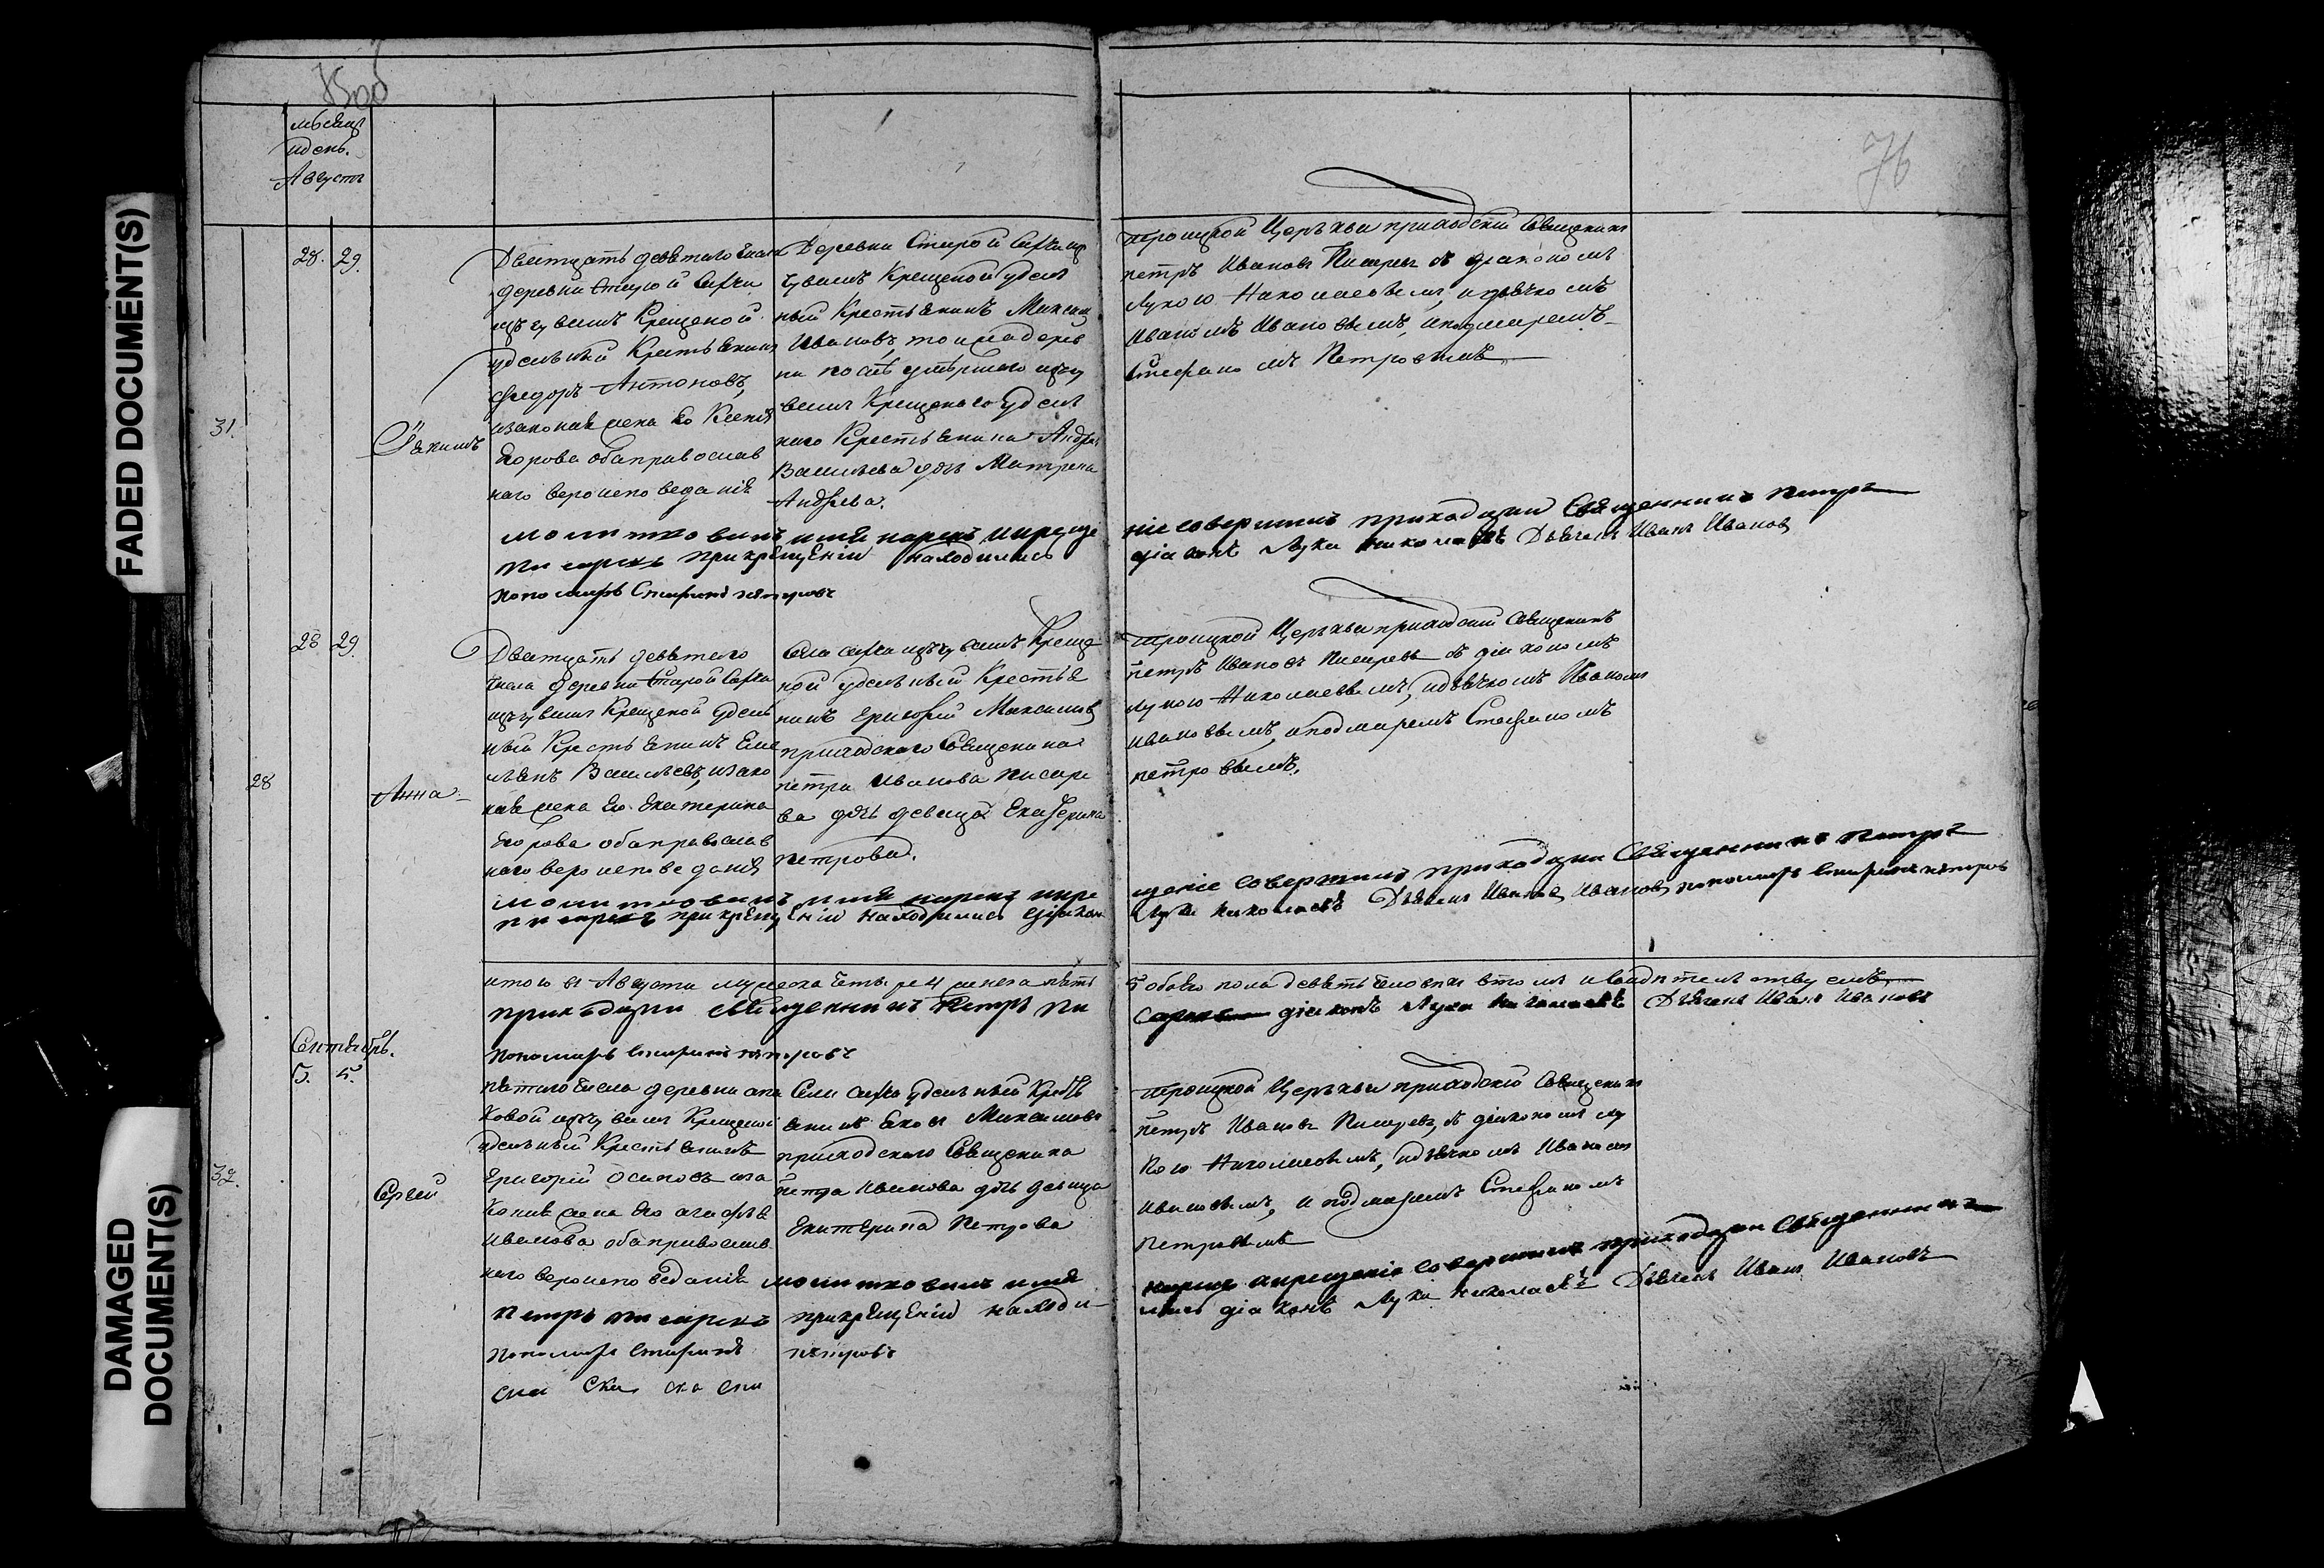 FADED DOCUMENT(S)
DAMAGED
DOCUMENT(S)
76
мѣсяцъ
идень.
Августъ
28. 29.
31.
Іакимъ
Дватцать девятаго числа
деревни Старой Сахчи
изъ чувашъ Крещеной
удельный Крестьянинъ
Федоръ Антоновъ,
изаконая жена его Ксенія
Егорова оба православ
наго вероисповеданія
Деревни Старой Сахчи изъ
чувашъ Крещеной удель
ный Крестьянинъ Максим
Ивановъ, тоижа дерев
ни послѣ умершаго изъ чу
вашъ Крещенаго Удель
наго Крестьянина Андрея
Васильева дочь Матрена
Андреева.
Троицкой Церькви приходскій Священникъ
петръ Ивановъ Писаревъ съ діакономъ
Лукою Николаевымъ, идьячкомъ
Иваномъ Ивановвымъ, ипономаремъ
Стефаномъ Петровымъ
молитвовилъ имя нарекъ икреще
ніе совершилъ приходцкии Священникъ Петръ
Писаревъ прикрѣщеніи находились
діаконъ Лука Николаевъ Дьячекъ Иванъ Ивановъ
пономарь Стефанъ петровъ
28 29.
28
Анна
Дватцать девятаго
числа деревни Старой Сахчи
изъ чувашъ Крещеной удель
ный Крестьянинъ Еме
льянъ Васильевъ, изако
ная жена его Екатерина
Егорова оба православ
наго вероисповеданія
Села сахча изъ чувашъ Креще
ной удельный Крестья
нинъ Григорій Максимовъ
приходскаго Священика
петра Иванова Писаре
ва дочь девица Екатерина
Петрова.
Троицкой Церькви приходскій Священикъ
петръ Ивановъ Писаревъ съ діакономъ
Лукою Николаеввымъ, идьячкомъ Иваномъ
Ивановвымъ, ипономаремъ Стефаномъ
петроввымъ.
молитвовилъ имя нарекъ икре
щеніе совершилъ приходцкии Священникъ Петръ
Писаревъ прикрѣщеніи находились діаконъ
Лука Николаевъ Дьячекъ Иванъ Ивановъ пономарь Стефанъ петровъ
итого въ Августѣ мужеска четыре 4 женска пять
5 обоего пола девять человѣкъ втомъ исвидѣтельствуемъ
приходцкии священникъ Петръ Пи
саревъ діаконъ Лука Николаевъ Дьячекъ Иванъ Ивановъ
пономарь Стефанъ петровъ
Сентябрь.
5. 5.
32.
Сергей
пятаго числа деревни
изъ чувашъ Крещеной
удельный Крестьянинъ
Григорій Осиповъ иза
коная жена его агафья
Иванова оба православ
наго вероисповеданія
Села сахча удельный Кресть
янинъ Яковъ Максимовъ
приходскаго Священика
петра Иванова дочь девица
Екатерина Петрова
Троицкой Церькви приходскій Священикъ
Петръ Ивановъ Писаревъ, съ діакономъ Лу
кою Николаевымъ, идьячкомъ Иваномъ
Ивановымъ, и пономаремъ Стефаномъ
Петровымъ
молитвовилъ имя
нарекъ икрещеніе совершилъ приходцкии Священникъ
Петръ Писаревъ прикрѣщеніи находи
лись діаконъ Лука Николаевъ Дьячекъ Иванъ Ивановъ
пономарь Стефанъ петровъ